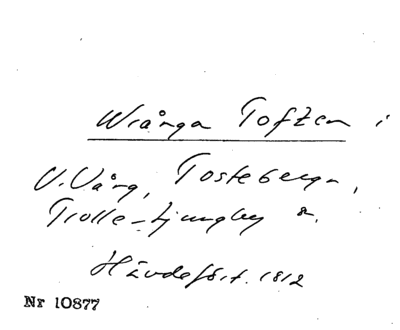 Wrånga Toften i
V. Vång, Tosteberga,
Trolle-Ljungby s.
Hävdefört. 1812
Nr 10877